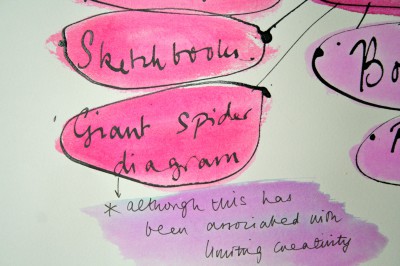 Sketchbooks.
Bo
Giant Spider
diagram
* although this has
been associated with
limiting creativity